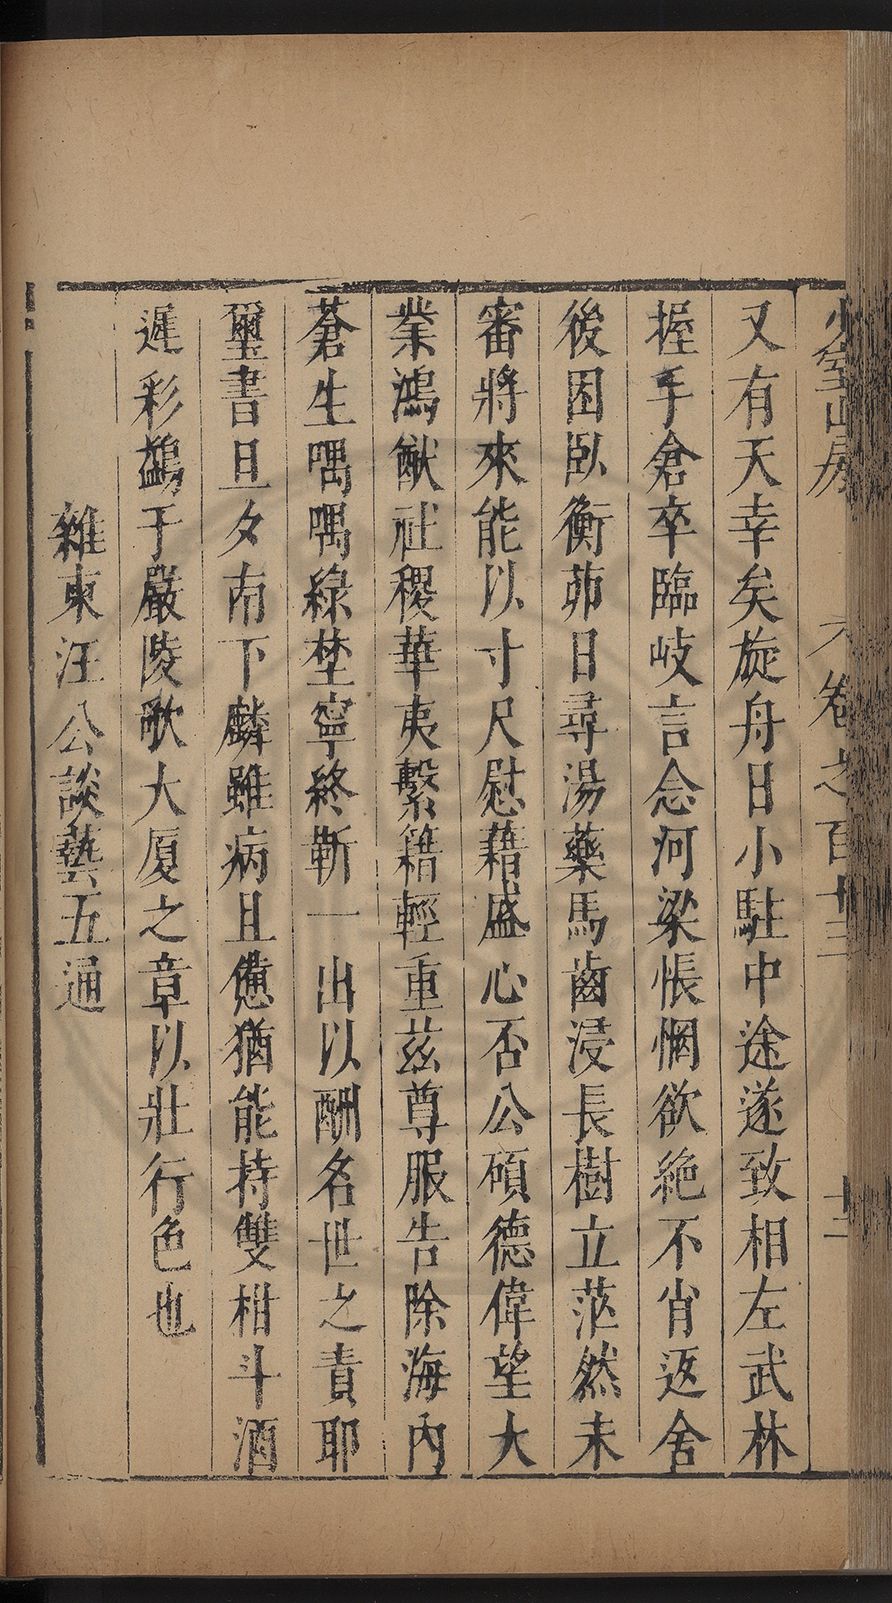 少室山房　卷之百十三　十二
又有天幸矣旋舟日小駐中途遂致相左武林
握手倉卒臨岐言念河梁悵惘欲絶不肖返舍
後困臥衡茆日尋湯藥馬齒浸長樹立茫然未
審將來能以寸尺慰藉盛心否公碩德偉望大
業鴻猷社稷華夷繫籍輕重茲尊服告除海內
蒼生喁喁綠埜寧終靳一出以酬名世之責耶
璽書旦夕南下麟雖病且憊猶能持雙柑斗酒
遲彩鷁于嚴陵歌大厦之章以壯行色也
雜柬汪公談藝五通